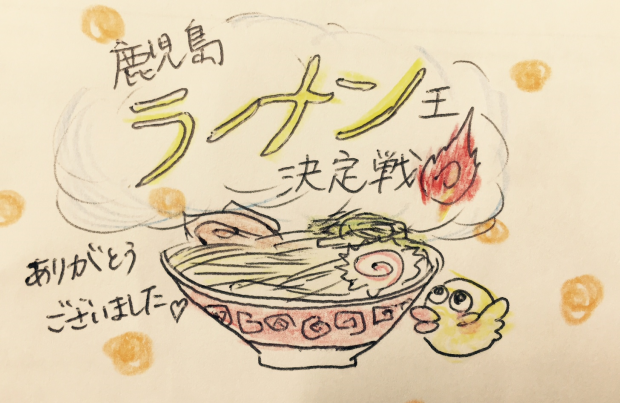 鹿児島
ラーメン王
決定戦
ありがとう
ございました♡